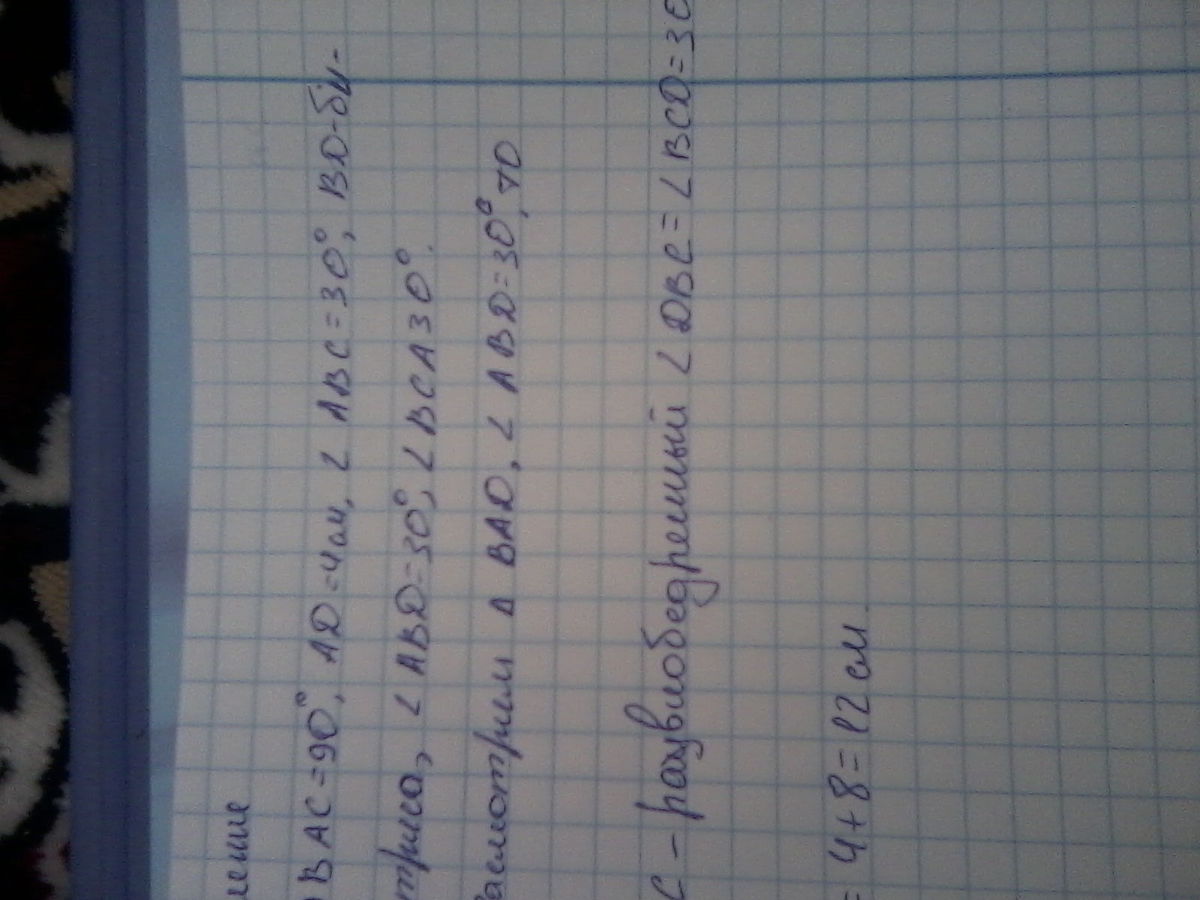 ление
BAC = 90°, AD = 4 см, ∠ ABC = 30°, BD - би-
триса, ∠ ABD = 30°, ∠ BCA 30°.
Расмотрием Δ BAD, ∠ ABD = 30°, то
C - равнобедренный ∠ DBC = ∠ BCD = 30
= 4 + 8 = 12 см.